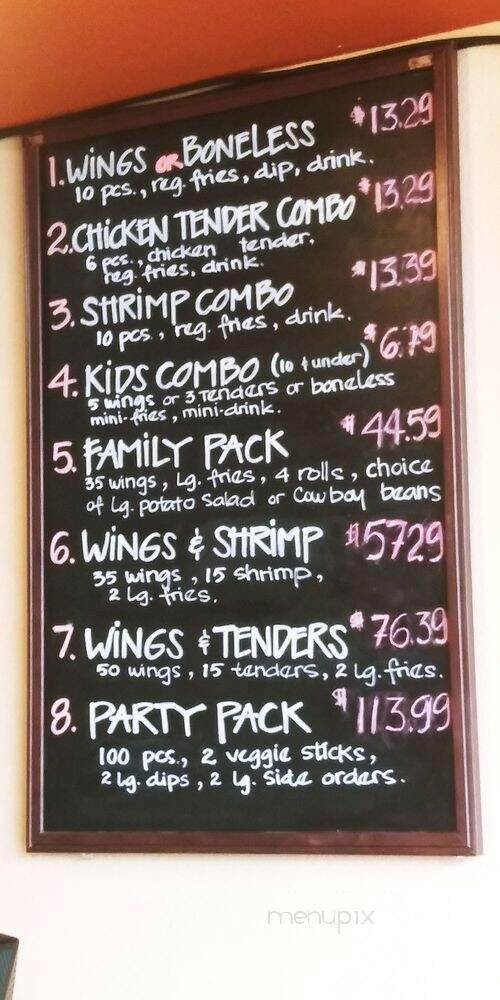 1. WINGS OR BONELESS $13.29
10 pcs., reg. fries, dip, drink.
2. CHICKEN TENDER COMBO $13.29
6 pcs., chicken tender,
reg. fries, drink.
3. SHRIMP COMBO $13.39
10 pcs., reg. fries, drink.
4. KIDS COMBO (10 & under) $6.79
5 wings or 3 Tenders or boneless
mini-fries, mini-drink.
5. FAMILY PACK $44.59
35 wings, Lg. fries, 4 rolls, choice
of Lg. potato Salad or Cowboy beans
6. WINGS & SHRIMP $57.29
35 wings, 15 shrimp,
2 lg. fries.
7. WINGS & TENDERS $76.39
50 wings, 15 tenders, 2 lg. fries.
8. PARTY PACK $113.99
100 pcs., 2 veggie sticks,
2 lg. dips, 2 lg. side orders.
menupix